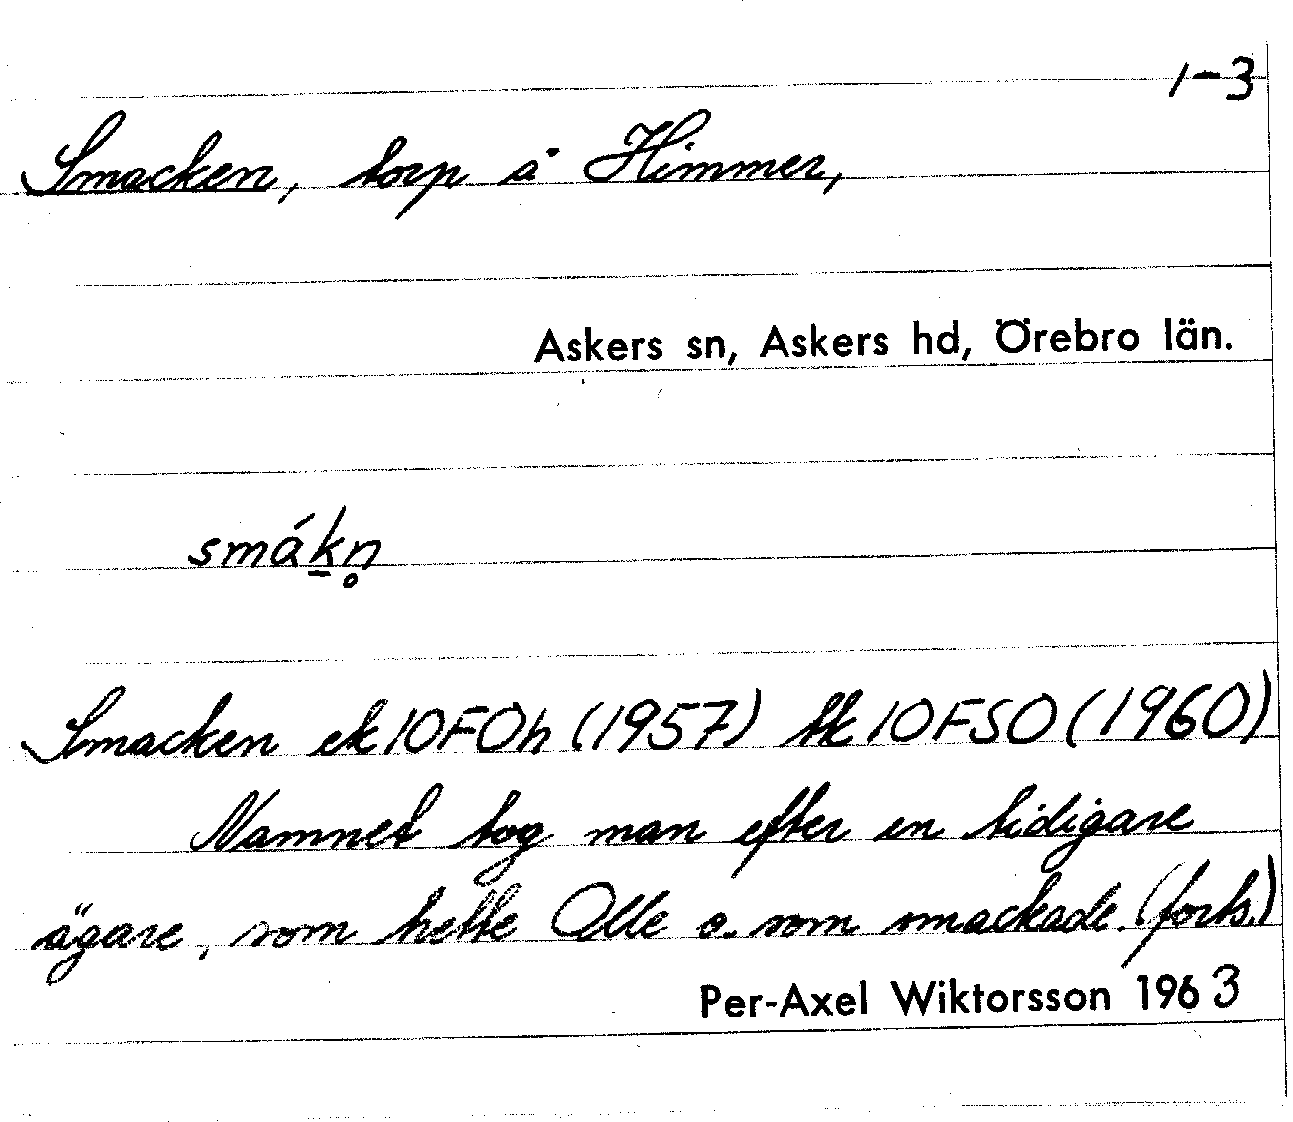 1-3
Smacken, torp å Himmer,
Askers sn, Askers hd, Örebro län.
smák̠n̥
Smacken ek 10FÖh (1957) tk 10FSO (1960)
Namnet tog man efter en tidigare
ägare, som hette Olle o. som smackade. (forts.)
Per-Axel Wiktorsson 1963